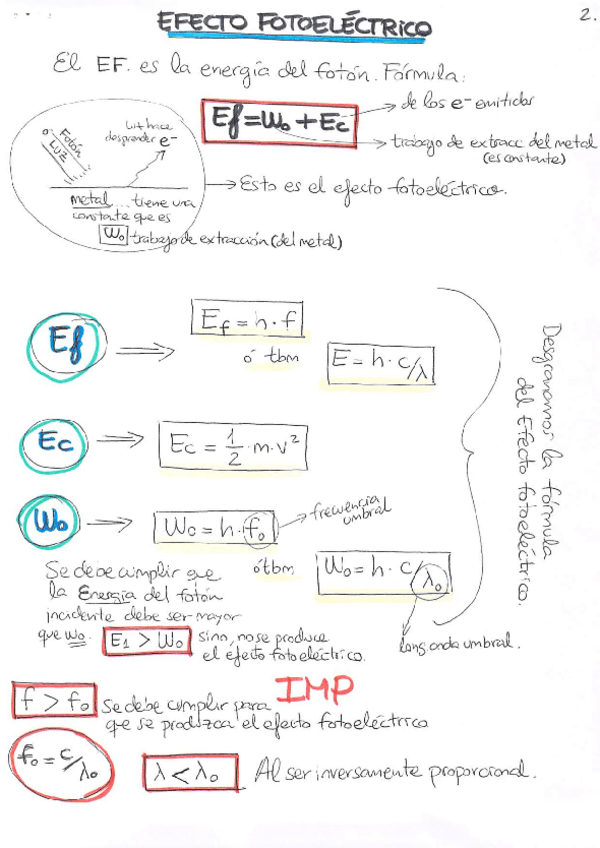 2.
EFECTO FOTOELÉCTRICO
El EF. es la energía del fotón. Fórmula:
Ef = Wo + Ec
de los e- emitidos
trabajo de extracc del metal
(es constante)
Fotón
LUZ
luz hace
desprender e-
metal... tiene una
constante que es
Wo trabajo de extracción (del metal)
Esto es el efecto fotoeléctrico.
Ef ⇒ Ef = h · f
ó tbm
E = h · c/λ
Ec ⇒ Ec = 1/2 · m · v²
Wo ⇒ Wo = h · fo
frecuencia
umbral
ó tbm
Wo = h · c/λo
long onda umbral.
Desgranamos la fórmula
del Efecto fotoeléctrico.
Se debe cumplir que
la Energía del fotón
incidente debe ser mayor
que Wo. E1 > Wo sino, no se produce
el efecto fotoeléctrico.
IMP
f > fo Se debe cumplir para
que se produzca el efecto fotoeléctrico
fo = c/λo
λ < λo Al ser inversamente proporcional.